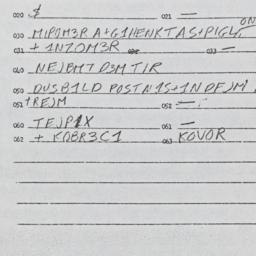 020 $ 021 —
ON
030 MIPOM3R A+G1HENKTAS,PIGU,
031 + 1NZOM3R 033 —
040 NEJBMT D3M TIR
050 DUSB1LD POSTN1S+1NDEJM
051 1REJM 052 —
060 TEJP1X 061 —
062 + KOBR3C1 063 KOVOR